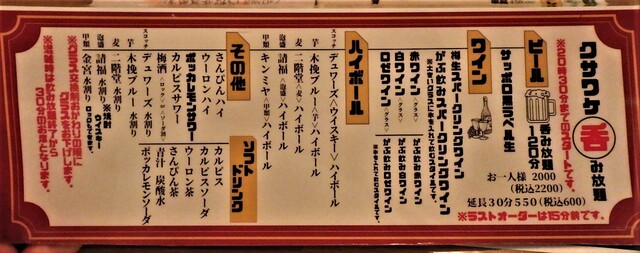 クサワケ 呑み放題
※20時30分までのスタートです。
呑み放題
120分
お一人様 2000
(税込2200)
延長30分550(税込600)
※ラストオーダーは15分前です。
ビール
サッポロ黒ラベル生
ワイン
梅生スパークリングワイン
がぶ飲みスパークリングワイン
赤ワイン<グラス>
がぶ飲み赤ワイン
白ワイン<グラス>
がぶ飲み白ワイン
ロゼワイン<グラス>
がぶ飲みロゼワイン
ハイボール
スコッチ デュワーズ<ウイスキー>ハイボール
芋 木挽ブルー<芋>ハイボール
麦 二階堂<麦>ハイボール
泡盛 請福<泡盛>ハイボール
甲類 キンミヤ<甲類>ハイボール
その他
さんぴんハイ
ウーロンハイ
カルピスサワー
ポッカレモンサワー
梅酒<ロック/水/ソーダ割>
スコッチ デュワーズ 水割り
芋 木挽ブルー 水割り
麦 二階堂 水割り
泡盛 請福 水割り
甲類 金宮 水割り
※焼酎
ウイスキー
ロックもできます。
ソフトドリンク
カルピス
カルピスソーダ
ウーロン茶
さんぴん茶
青汁 炭酸水
ポッカレモンソーダ
※グラス交換制おかわりの際に
グラスをお下げします。
※混雑時は飲み放題終了から
30分のお席となります。